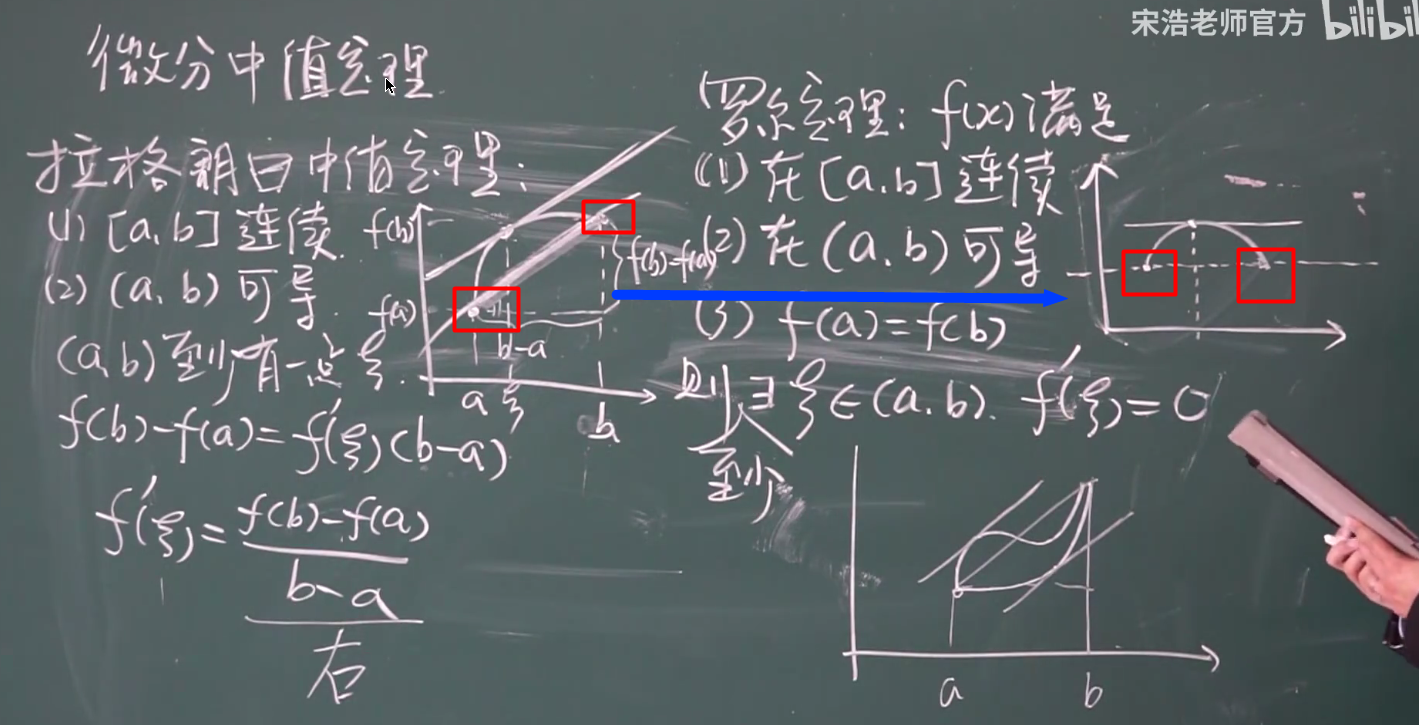 宋浩老师官方 bilibil
微分中值定理
拉格朗日中值定理:
(1) [a,b] 连续.
(2) (a,b) 可导.
(a,b) 至少有一点ξ.
f(b)-f(a)=f'(ξ)(b-a)
f'(ξ)=\frac{f(b)-f(a)}{b-a}
右
f(b)
f(a)
f(b)-f(a)
b-a
a ξ b
罗尔定理: f(x)满足
(1) 在[a,b]连续
(2) 在(a,b)可导
(3) f(a)=f(b)
则∃ξ∈(a,b). f'(ξ)=0
至少
a b